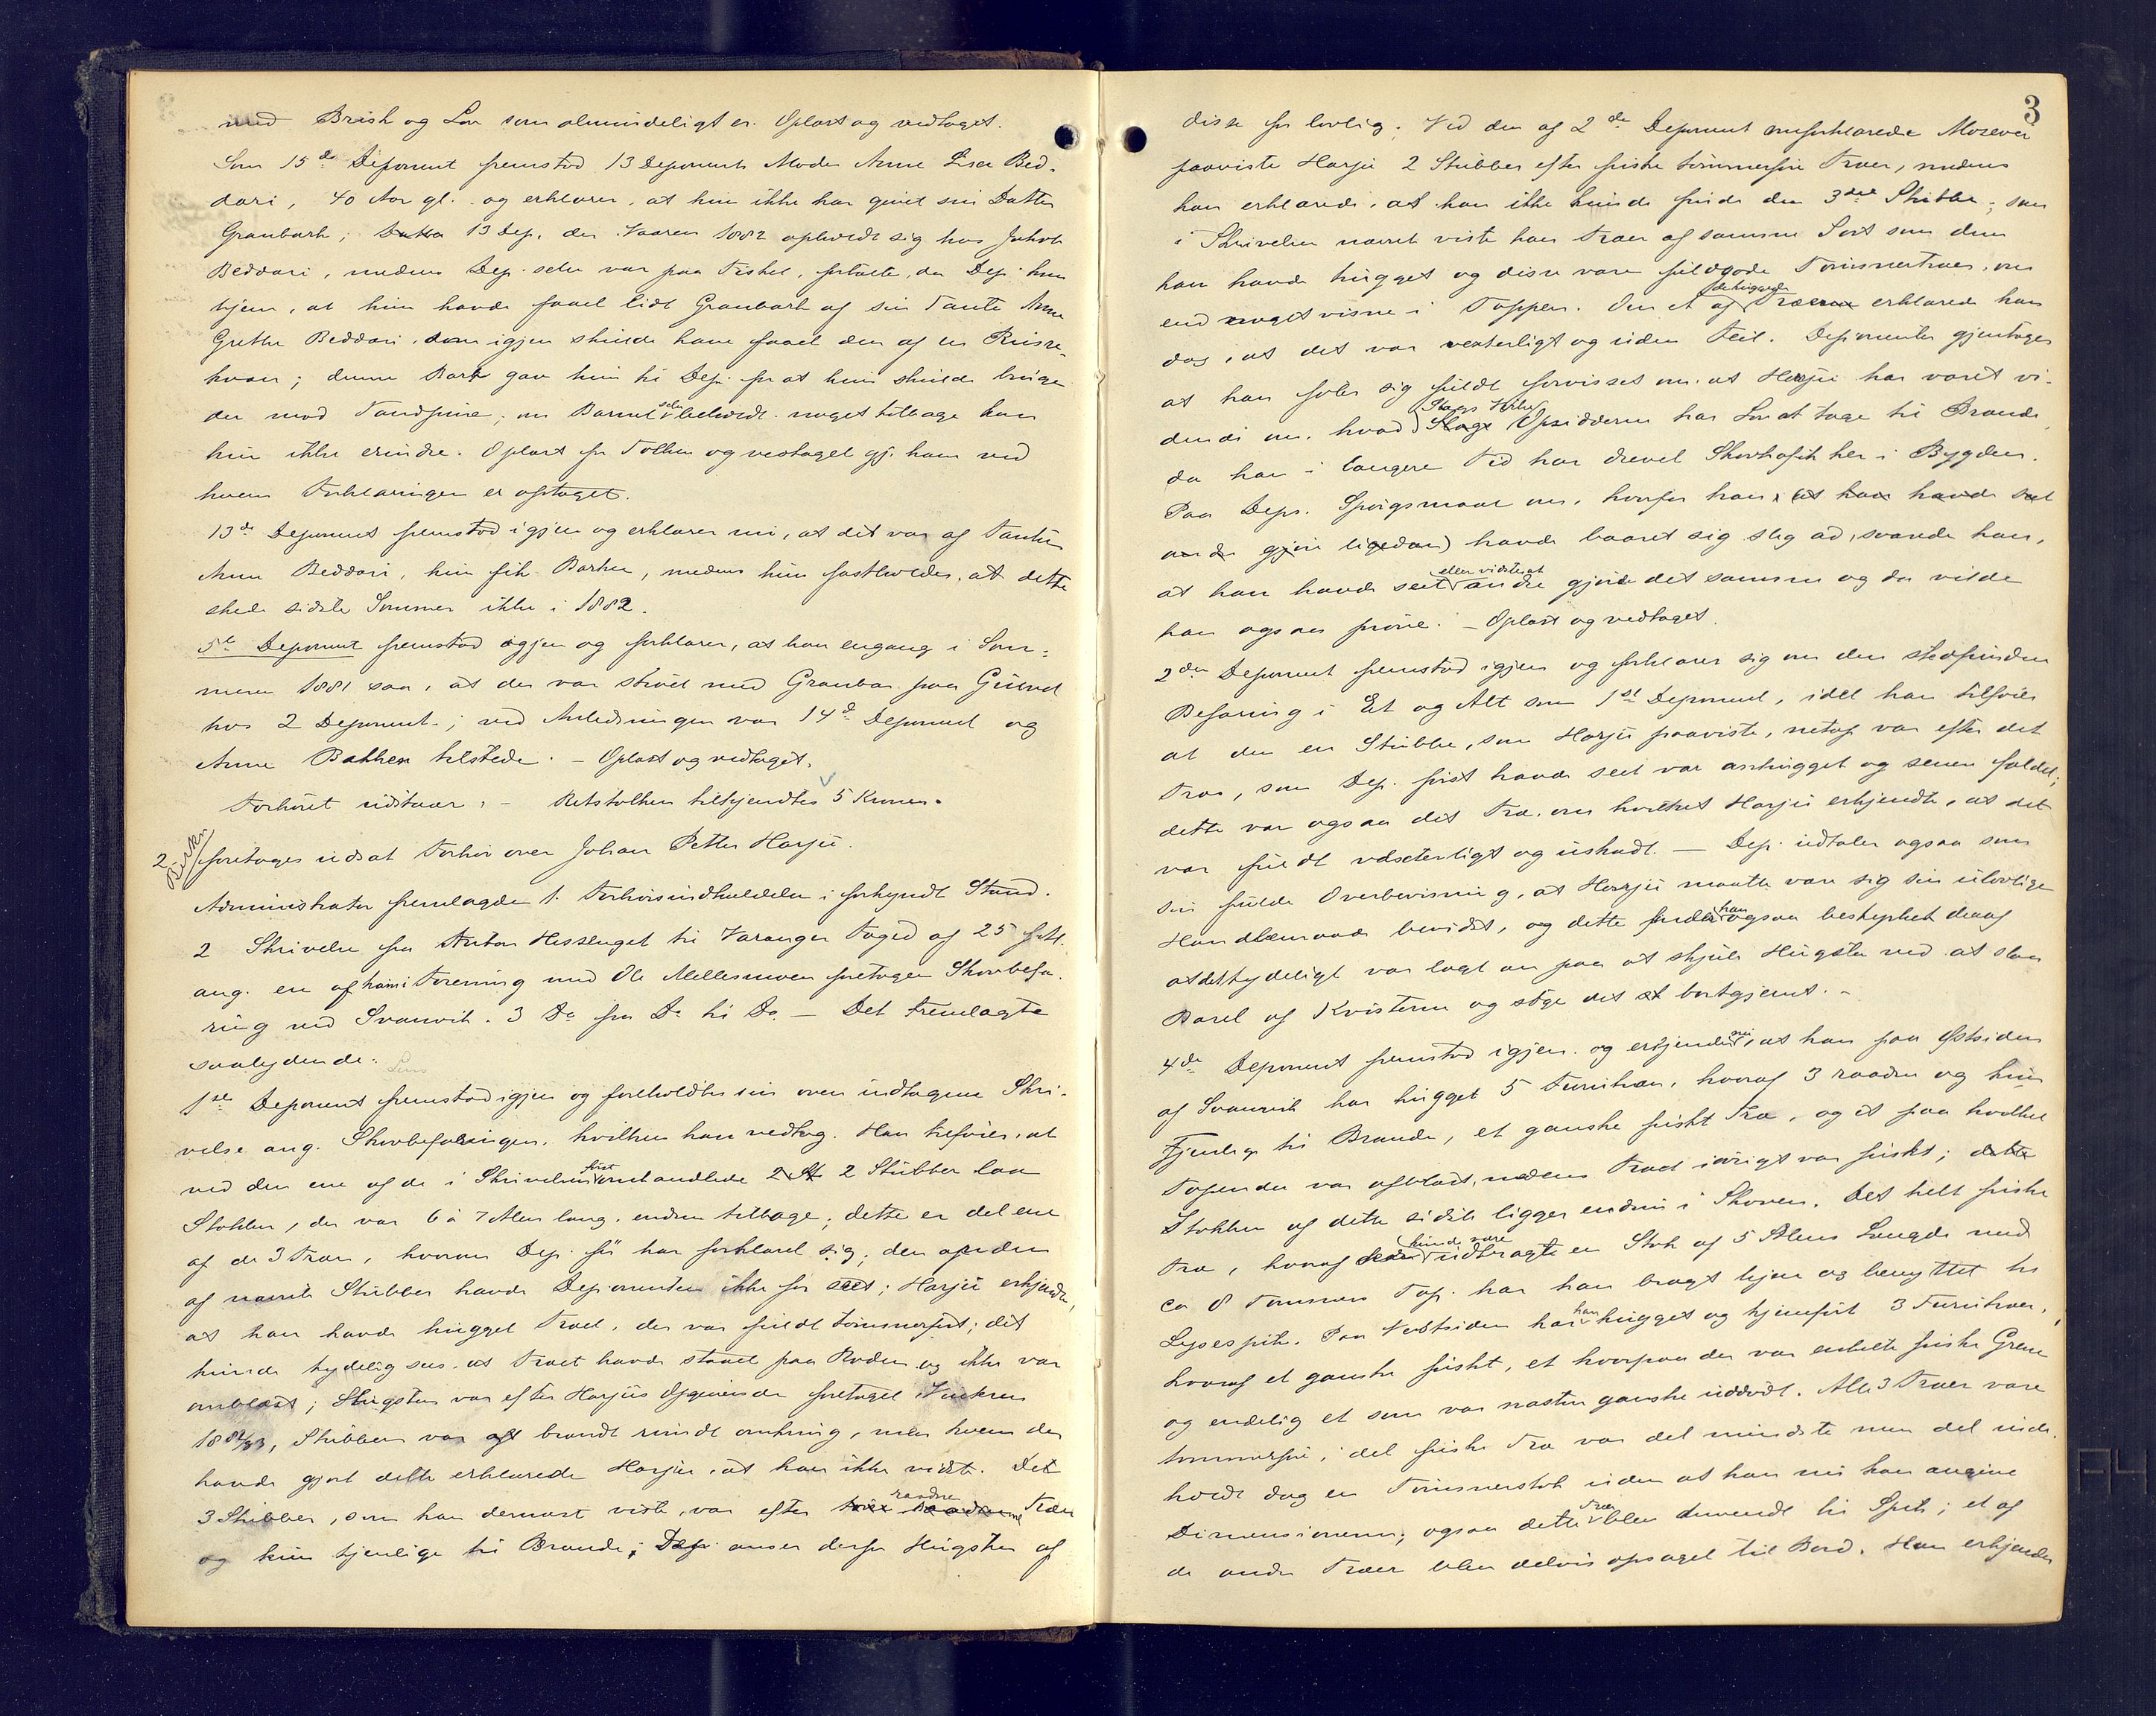 med Brisk og Lov som almindeligt er. Oplæst og vedtaget.
Som 15de Deponent fremstod 13 Deponents Moder Anne Lisa Bed-
dari, 40 Aar gl. og erklærer, at hun ikke har givet sin Datter
Granbark; Datter 13 Dep. der Vaaren 1882 opholdt sig hos Jakob
Beddari, medens Dep. selv var paa Fiskeri, fortalte, da Dep. kom
hjem, at hun havde faaet lidt Granbark af sin Tante Anne
Grethe Beddari, som igjen skulde have faaet den af en Russe-
kvæn; denne Bark gav hun til Dep. for at hun skulde bruge
den mod Tandpine; om Barnet selv beholdt noget tilbage kan
hun ikke erindre. Oplæst for Tolken og vedtaget gj. ham ved
hvem Forklaringen er optaget.
13de Deponent fremstod igjen og erklærer nu, at det var af Tanten
Anne Beddari, hun fik Barken, medens hun fastholder, at dette
skede sidste Sommer ikke i 1882.
5te Deponent fremstod igjen og forklarer, at han engang i Som-
meren 1881 saa, at der var strøet med Granbar paa Gulvet
hos 2 Deponent; ved Anledningen var 14de Deponent og
Anne Bakken tilstede. – Oplæst og vedtaget.
Forhøret udstaar. – Retstolken tilkjendtes 5 Kroner.
2 foretoges udsat Forhør over Johan Petter Harju.
Administrator fremlagde 1. Forhørsindkaldelse i forkyndt Stand.
2 Skrivelse fra Anton Hesseng til Varanger Foged af 25 f.M.
ang. en af ham i Forening med Ole Mellesmoen foretagen Skovbefa-
ring ved Svanvik. 3 Do fra Do til Do – Det Fremlagte
saalydende:
1ste Deponent fremstod igjen og foreholdtes sin oven indtagne Skri-
velse ang. Skovbefaringen, hvilken han vedtog. Han tilføier, at
ved den ene af de i Skrivelsen først omhandlede 2 St 2 Stubber laa
Stokken, der var 6 à 7 Alen lang, endnu tilbage; dette er det ene
af de 3 Træer, hvorom Dep. før har forklaret sig; den anden
af nævnte Stubber havde Deponenten ikke før seet; Harju erkjendte,
at han havde hugget Træet, der var fuldt tømmerført; det
kunde tydelig sees at Træet havde staaet paa Roden og ikke var
omblæst; Hugsten var efter Harjus Opgivende foretaget Vinteren
1882/83, Stubben var afbrændt rundt omkring, men hvem der
havde gjort dette erklærede Harju, at han ikke vidste. De
3 Stubber, som han dernæst viste, var efter raadne Træer
og kun tjenlige til Brænde; Dep. anser derfor Hugsten af
3
disse for lovlig. Ved den af 2de Deponent omforklarede Morevei
paaviste Harju 2 Stubber efter friske tømmerføre Træer, medens
han erklærede, at han ikke kunde finde den 3die Stubbe; som
i Skrivelsen nævnt viste han Træer af samme Sort som dem
han havde hugget og disse vare fuldgode Tømmertræer, om
end noget visne i Toppen. Om et af de huggede Træerne erklærede han
dog, at det var vexterligt og uden Feil. Deponenten gjentager
at han føler sig fuldt forvisset om, at Harju har været vi-
dende om, hvad Slags Virke Opsidderne har Lov at tage til Brænde,
da han i længere Tid har drevet Skovhugst her i Bygden.
Paa Deps. Spørgsmaal om, hvorfor han, at han havde seet
andre gjøre ligedan) havde baaret sig slig ad, svarede han,
at han havde seet eller vidste at andre gjorde det samme og da vilde
han ogsaa prøve. – Oplæst og vedtaget.
2den Deponent fremstod igjen og forklarer sig om den stedfundne
Befaring i Et og Alt som 1ste Deponent, idet han tilføier
at den ene Stubbe, som Harju paaviste, netop var efter det
Træ, som Dep. først havde seet var anhugget og senere fældet;
dette var ogsaa det Træ, om hvilket Harju erkjendte, at det
var fuldt vexterligt og uskadt. – Dep. udtaler ogsaa som
sin fulde Overbevisning, at Harju maatte være sig sin ulovlige
Handlemaade bevidst, og dette finder han ogsaa bestyrket deraf
at det tydeligt var lagt an paa at skjule Hugsten ved at slaa
Barel af Kvisterne og søge det at bortgjemt. –
4de Deponent fremstod igjen og erkjender nu, at han paa Østsiden
af Svanvik har hugget 5 Furutræer, hvoraf 3 raadne og kun
tjenlige til Brænde, et ganske friskt Træ, og et paa hvilket
Toppen der var afblæst, medens Træet iøvrigt var friskt; dette
Stokken af dette sidste ligger endnu i Skoven. Det helt friske
Træ, hvoraf kunde være udbragt en Stok af 5 Alens Længde med
ca 8 Tommers Top, har han bragt hjem og benyttet til
Lysespik. Paa Vestsiden har han hugget og hjemført 3 Furutræer,
hvoraf et ganske friskt, et hvorpaa der var enkelte friske Grene
og endelig et som var næsten ganske uddødt. Alle 3 Træer vare
tømmerføre, det friske Træ var det mindste men det inde-
holdt dog en Tømmerstok uden at han nu kan angive
Dimensionerne; ogsaa dette Træ blev anvendt til Spik; et af
de andre Træer blev delvis opsaget til Bord. Han erkjender